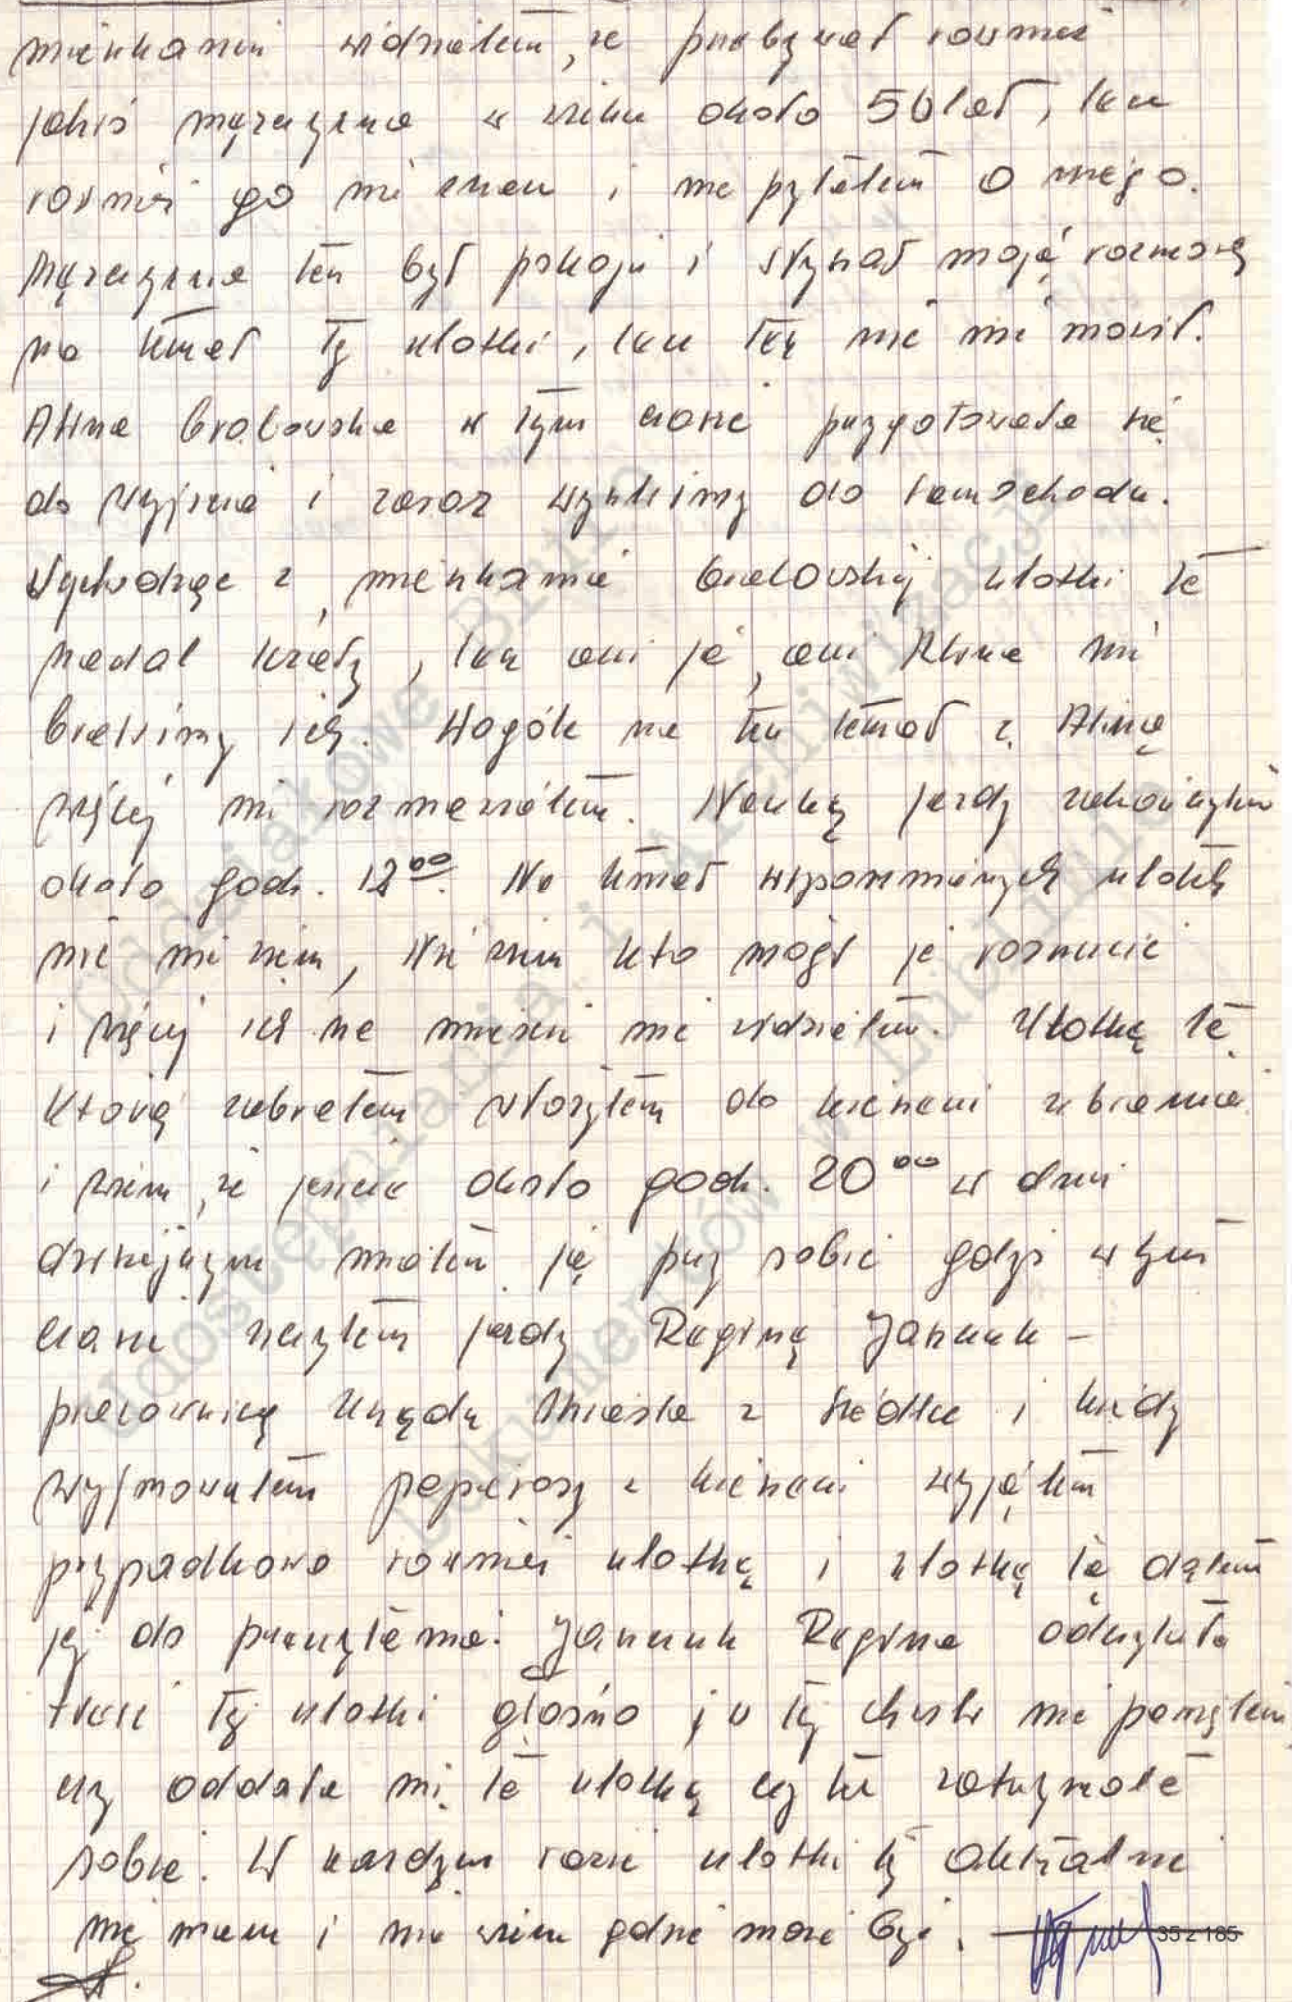 mieszkaniu widziałem, że przebywał również
jakiś mężczyzna w wieku około 50 lat, lecz
również go nie znam i nie pytałem o niego.
Mężczyzna ten był pokoju i słyszał moją rozmowę
na temat tej ulotki, lecz też nic nie mówił.
Alina Grabowska w tym czasie przygotowała się
do wyjścia i zaraz wyszliśmy do samochodu.
Wychodząc z mieszkania Grabowskiej ulotki te
nadal leżały, lecz ani ja, ani Alina nie
braliśmy ich. Wogóle na ten temat z Aliną
więcej nie rozmawiałem. Naukę jazdy zakończyłem
około godz. 12⁰⁰. Na temat wspomnianych ulotek
nic nie wiem, Nie wiem kto mógł je rozrzucić
i więcej ich na mieście nie widziałem. Ulotkę tę
którą zabrałem włożyłem do kieszeni ubrania
i wiem, że jeszcze około godz. 20⁰⁰ w dniu
dzisiejszym miałem ją przy sobie gdyż w tym
czasie uczyłem jazdy Reginę Janczuk –
pracownicę Urzędu Miasta z Siedlce i kiedy
wyjmowałem papierosy z kieszeni wyjąłem
przypadkowo również ulotkę i ulotkę tę dałem
jej do przeczytania. Janczuk Regina odczytała
treść tej ulotki głośno i w tej chwili nie pamiętam
czy oddała mi tę ulotkę czy też zatrzymała
sobie. W każdym razie ulotki tej aktualnie
nie mam i nie wiem gdzie może być.
35 z 185
Udostępniania i Archiwizacji
Dokumentów w Lublinie
Oddziałowe Biuro